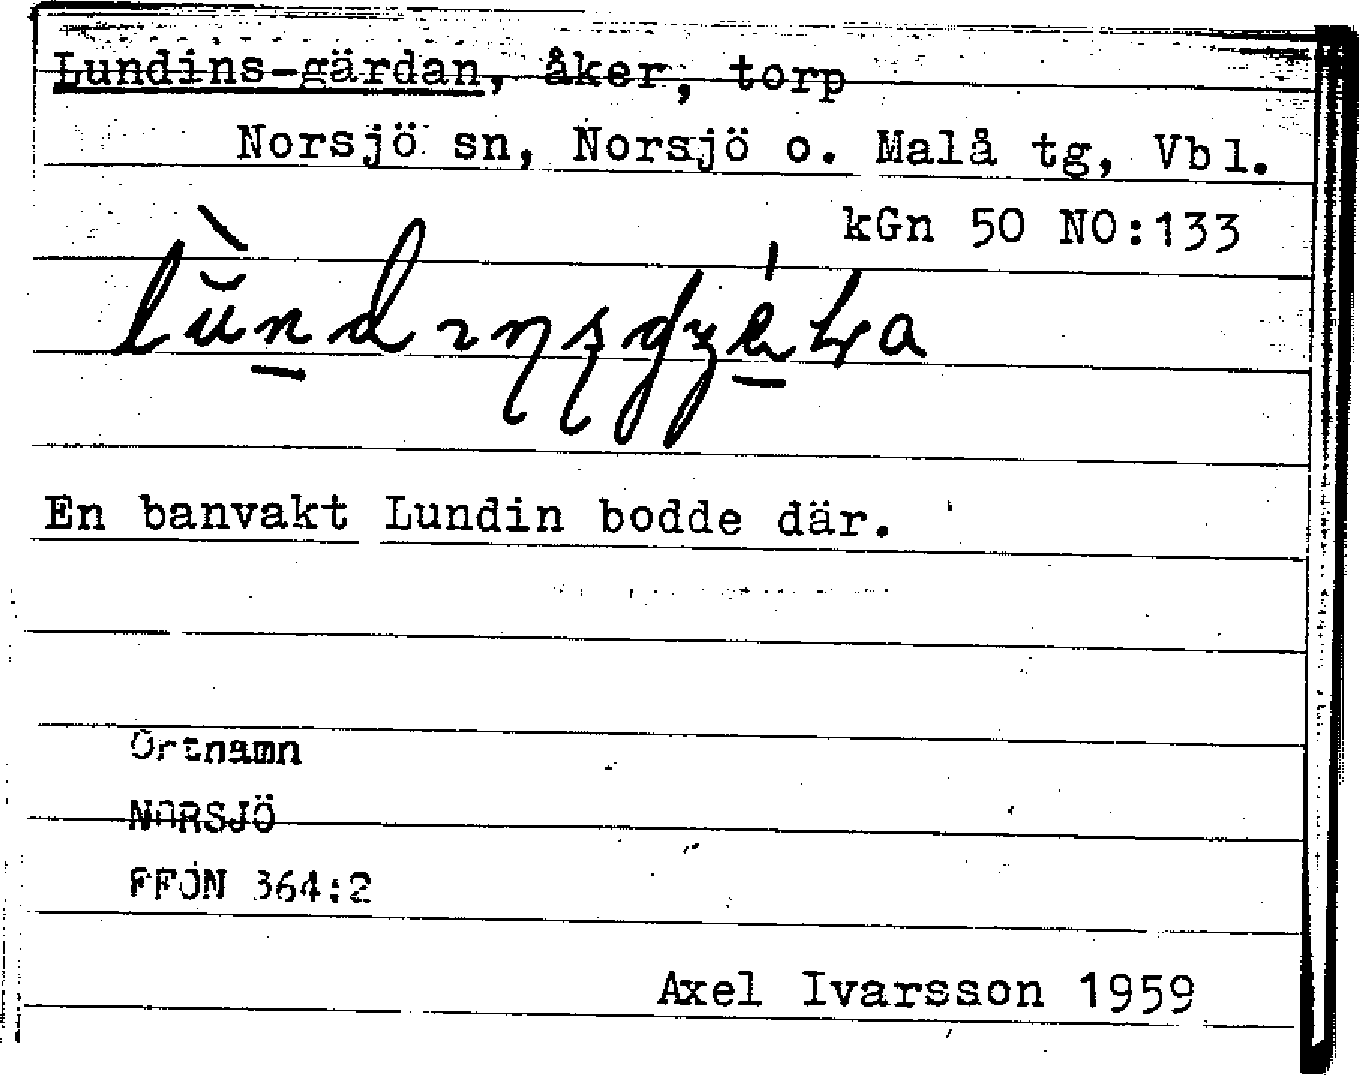 Lundins-gärdan, åker, torp
Norsjö sn, Norsjö o. Malå tg, Vbl.
kGn 50 NO:133
En banvakt Lundin bodde där.
Ortnamn
NORSJÖ
FFÖN 364:2
Axel Ivarsson 1959